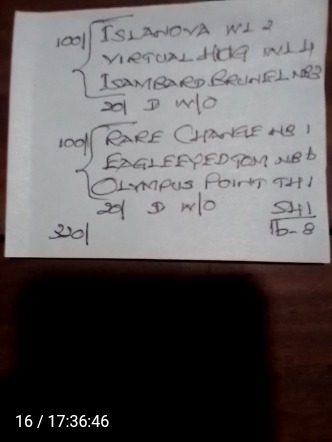 100/ ISLANOVA W1 2
VIRTUAL HOG W1 4
ISAMBARD BRUNEL NB3
20/ D W/O
100/ RARE CHANGE NB 1
EAGLEEYEDTOM NB 6
OLYMPUS POINT TH1
20/ D W/O
SH1
220/
16-8
16 / 17:36:46